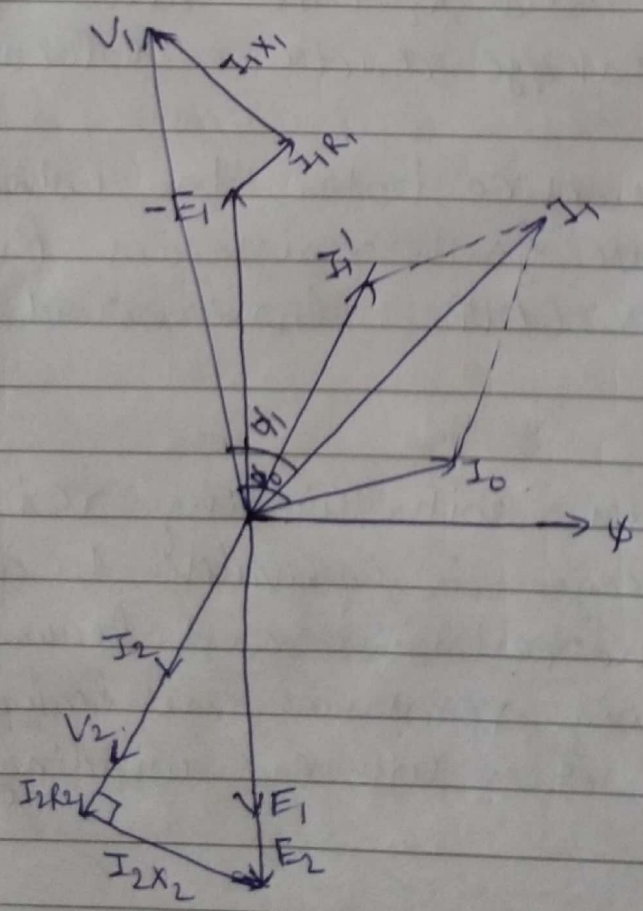 V1
I1X1
I1R1
-E1
I1'
I1
φ1
φ0
I0
ψ
I2
V2
I2R2
E1
E2
I2X2